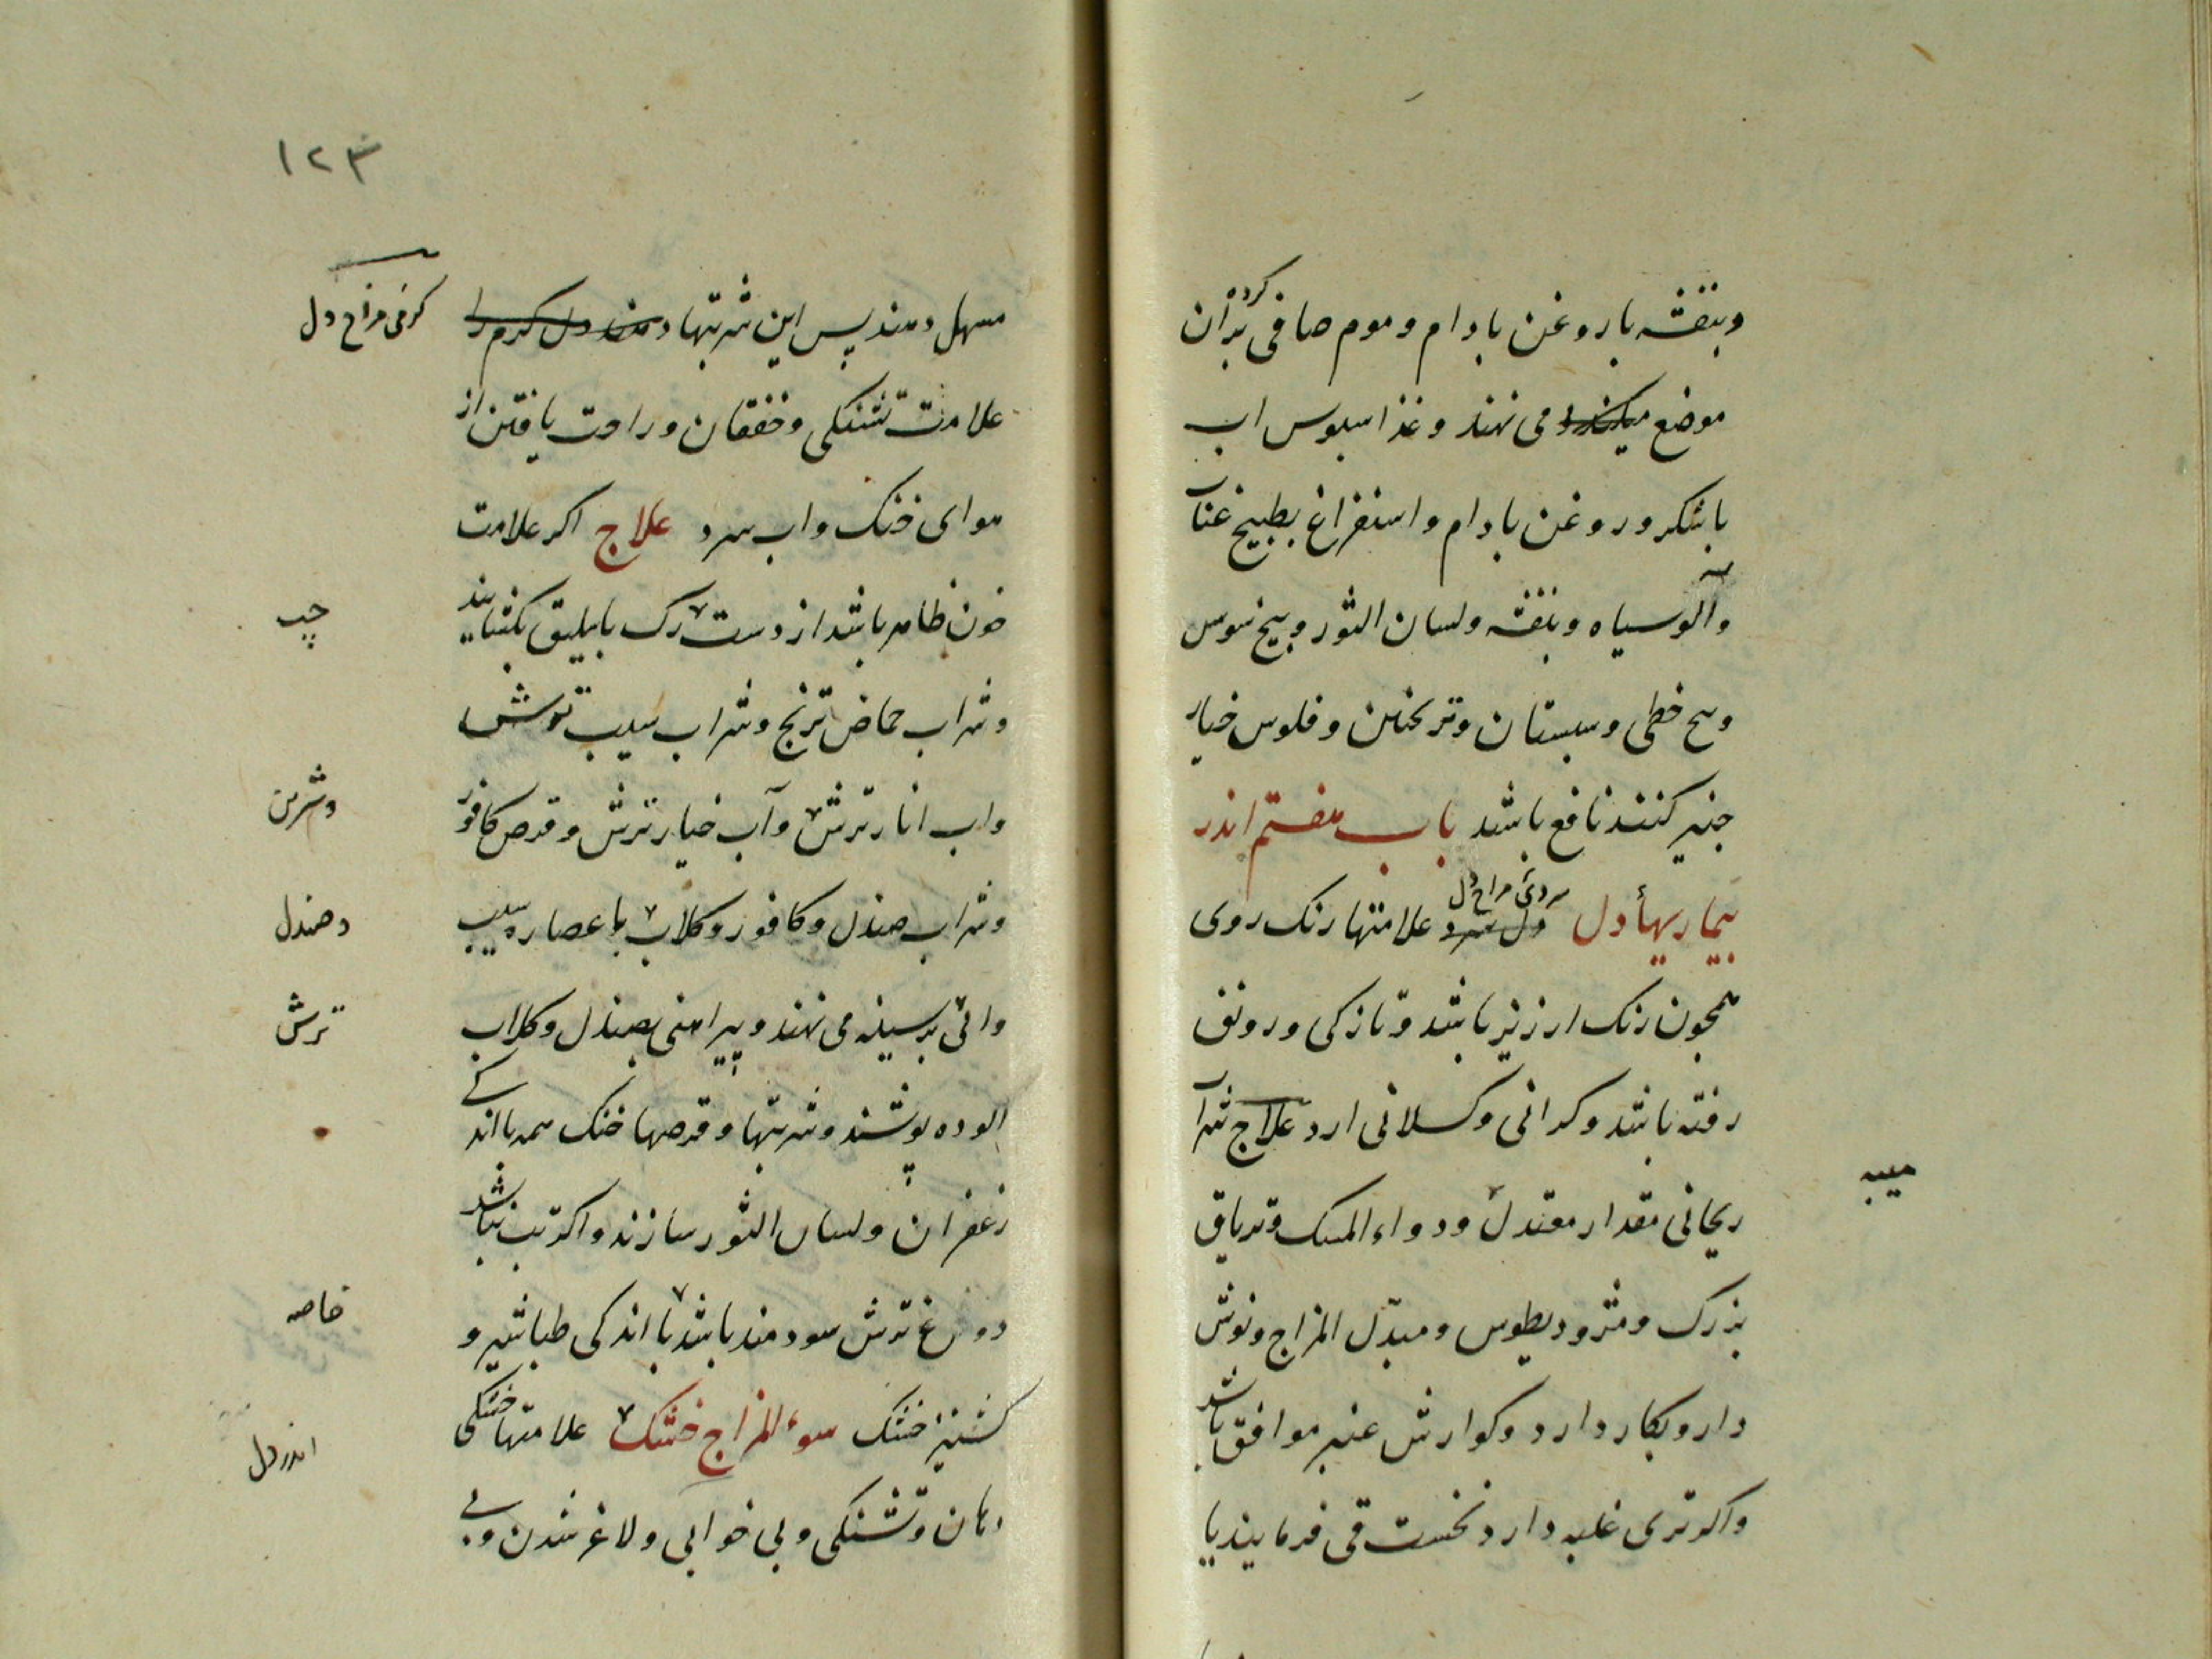 وبنفشه با روغن بادام وموم صافی کرده بدان
موضع می نهند وغذا سبوس اب
با شکر وروغن بادام واستفراغ بطبیخ عناب
وآلو سیاه وبنفشه ولسان الثور وبیخ سوس
وبیخ خطمی وسبستان وترنجبین وفلوس خیار
جنبر کنند نافع باشد باب هفتم اندر
بیماریهأ دل سردی مزاج دل دل سرد علامتها رنک روی
همچون رنک ارزیز باشد وتازکی ورونق
رفته باشد وکرانی وکسلانی ارد علاج شراب
ریحانی مقدار معتدل ودواء المسک وتریاق
میبه
بزرک ومثرودیطوس ومبدّل المزاج ونوش
دارو بکار دارد وکوارش عنبر موافق باشد
واکر تری غلبه دارد نخست قی فرمایند یا
۱۲۳
مسهل دهند پس این شربتها دهند دل کرم را
کرمی مزاج دل
علامت تشنکی وخفقان وراحت یافتن از
هوای خنک واب سرد علاج اکر علامت
خون ظاهر باشد از دست رک باسلیق بکشایند
چپ
وشراب حماض ترنج وشراب سیب ترش
واب انار ترش وآب خیار ترش وقرص کافور
وشیرین
وشراب صندل وکافور وکلاب با عصاره سیب
وصندل
وابی بر سینه می نهند وپیراهنی بصندل وکلاب
ترش
الوده پوشند وشربتها وقرصها خنک همه با اندکی
زعفران ولسان الثور سازند واکر تب نباشد
دوغ ترش سودمند باشد با اندکی طباشیر و
خاصه
کشنیز خشک سوء المزاج خشک علامتها خشکی
اندر دل
دهان وتشنکی وبی خوابی ولاغر شدن وبی